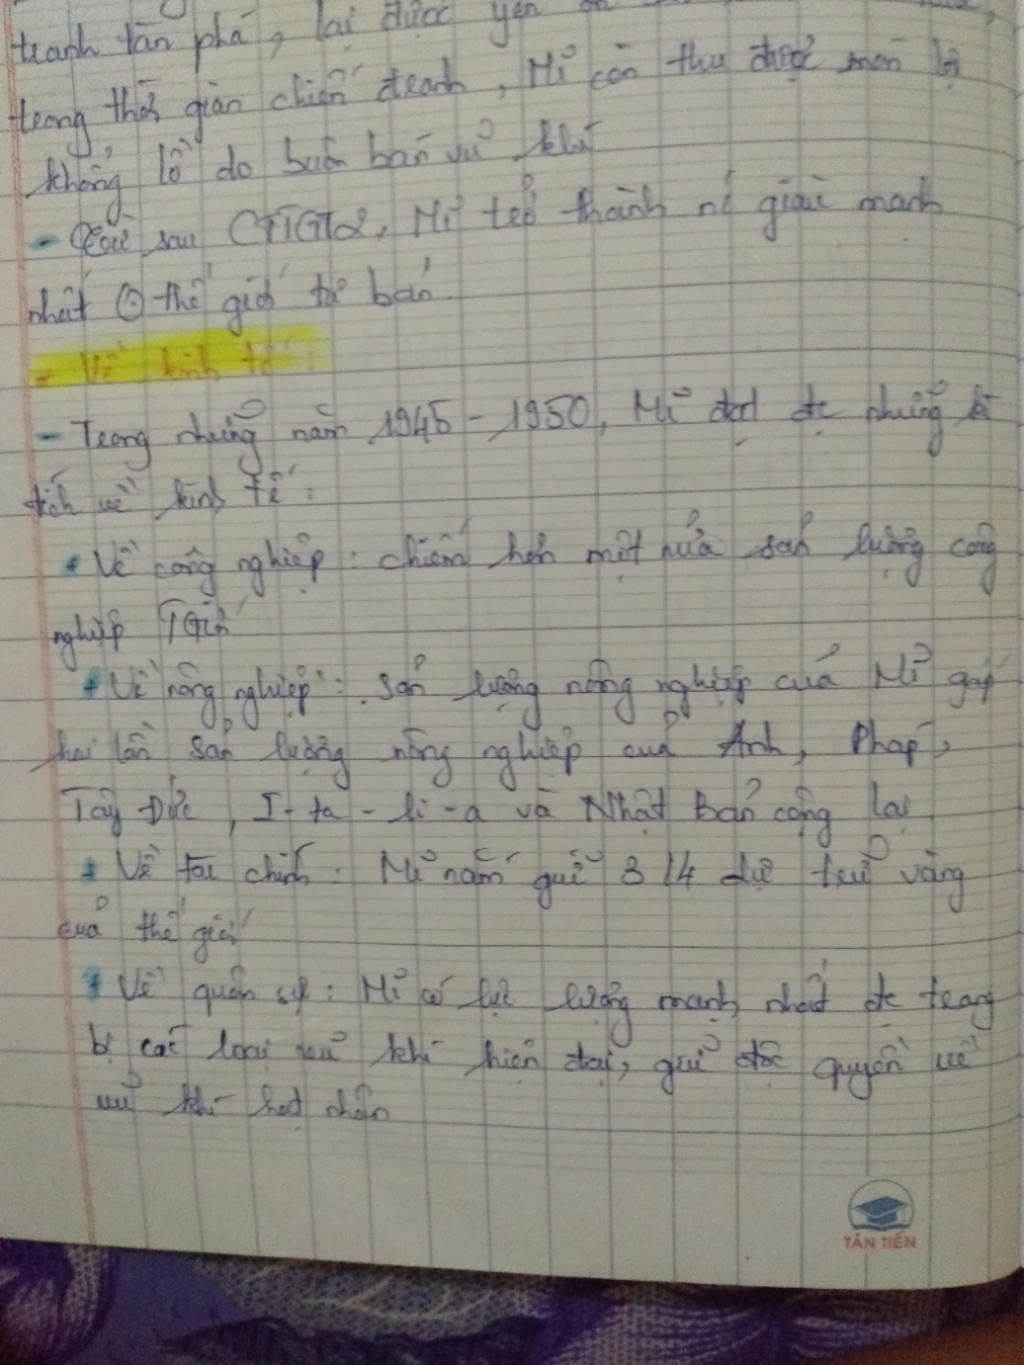 tranh tàn phá, lại được yên ổn
trong thời gian chiến tranh, Mĩ còn thu được món lợi
khổng lồ do buôn bán vũ khí
- sau CTTGT2, Mĩ trở thành nc giàu mạnh
nhất thế giới tư bản.
* Về kinh tế:
- Trong những năm 1945 - 1950, Mĩ đạt đc những kì
tích về kinh tế:
+ Về công nghiệp: chiếm hơn một nửa sản lượng công
nghiệp TGiới
+ Về nông nghiệp: sản lượng nông nghiệp của Mĩ gấp
hai lần sản lượng nông nghiệp của Anh, Pháp,
Tây Đức, I-ta-li-a và Nhật Bản cộng lại
+ Về tài chính: Mĩ nắm giữ 3/4 dự trữ vàng
của thế giới
+ Về quân sự: Mĩ có lực lượng mạnh nhất đc trang
bị các loại vũ khí hiện đại, giữ độc quyền về
vũ khí hạt nhân
TÂN TIẾN